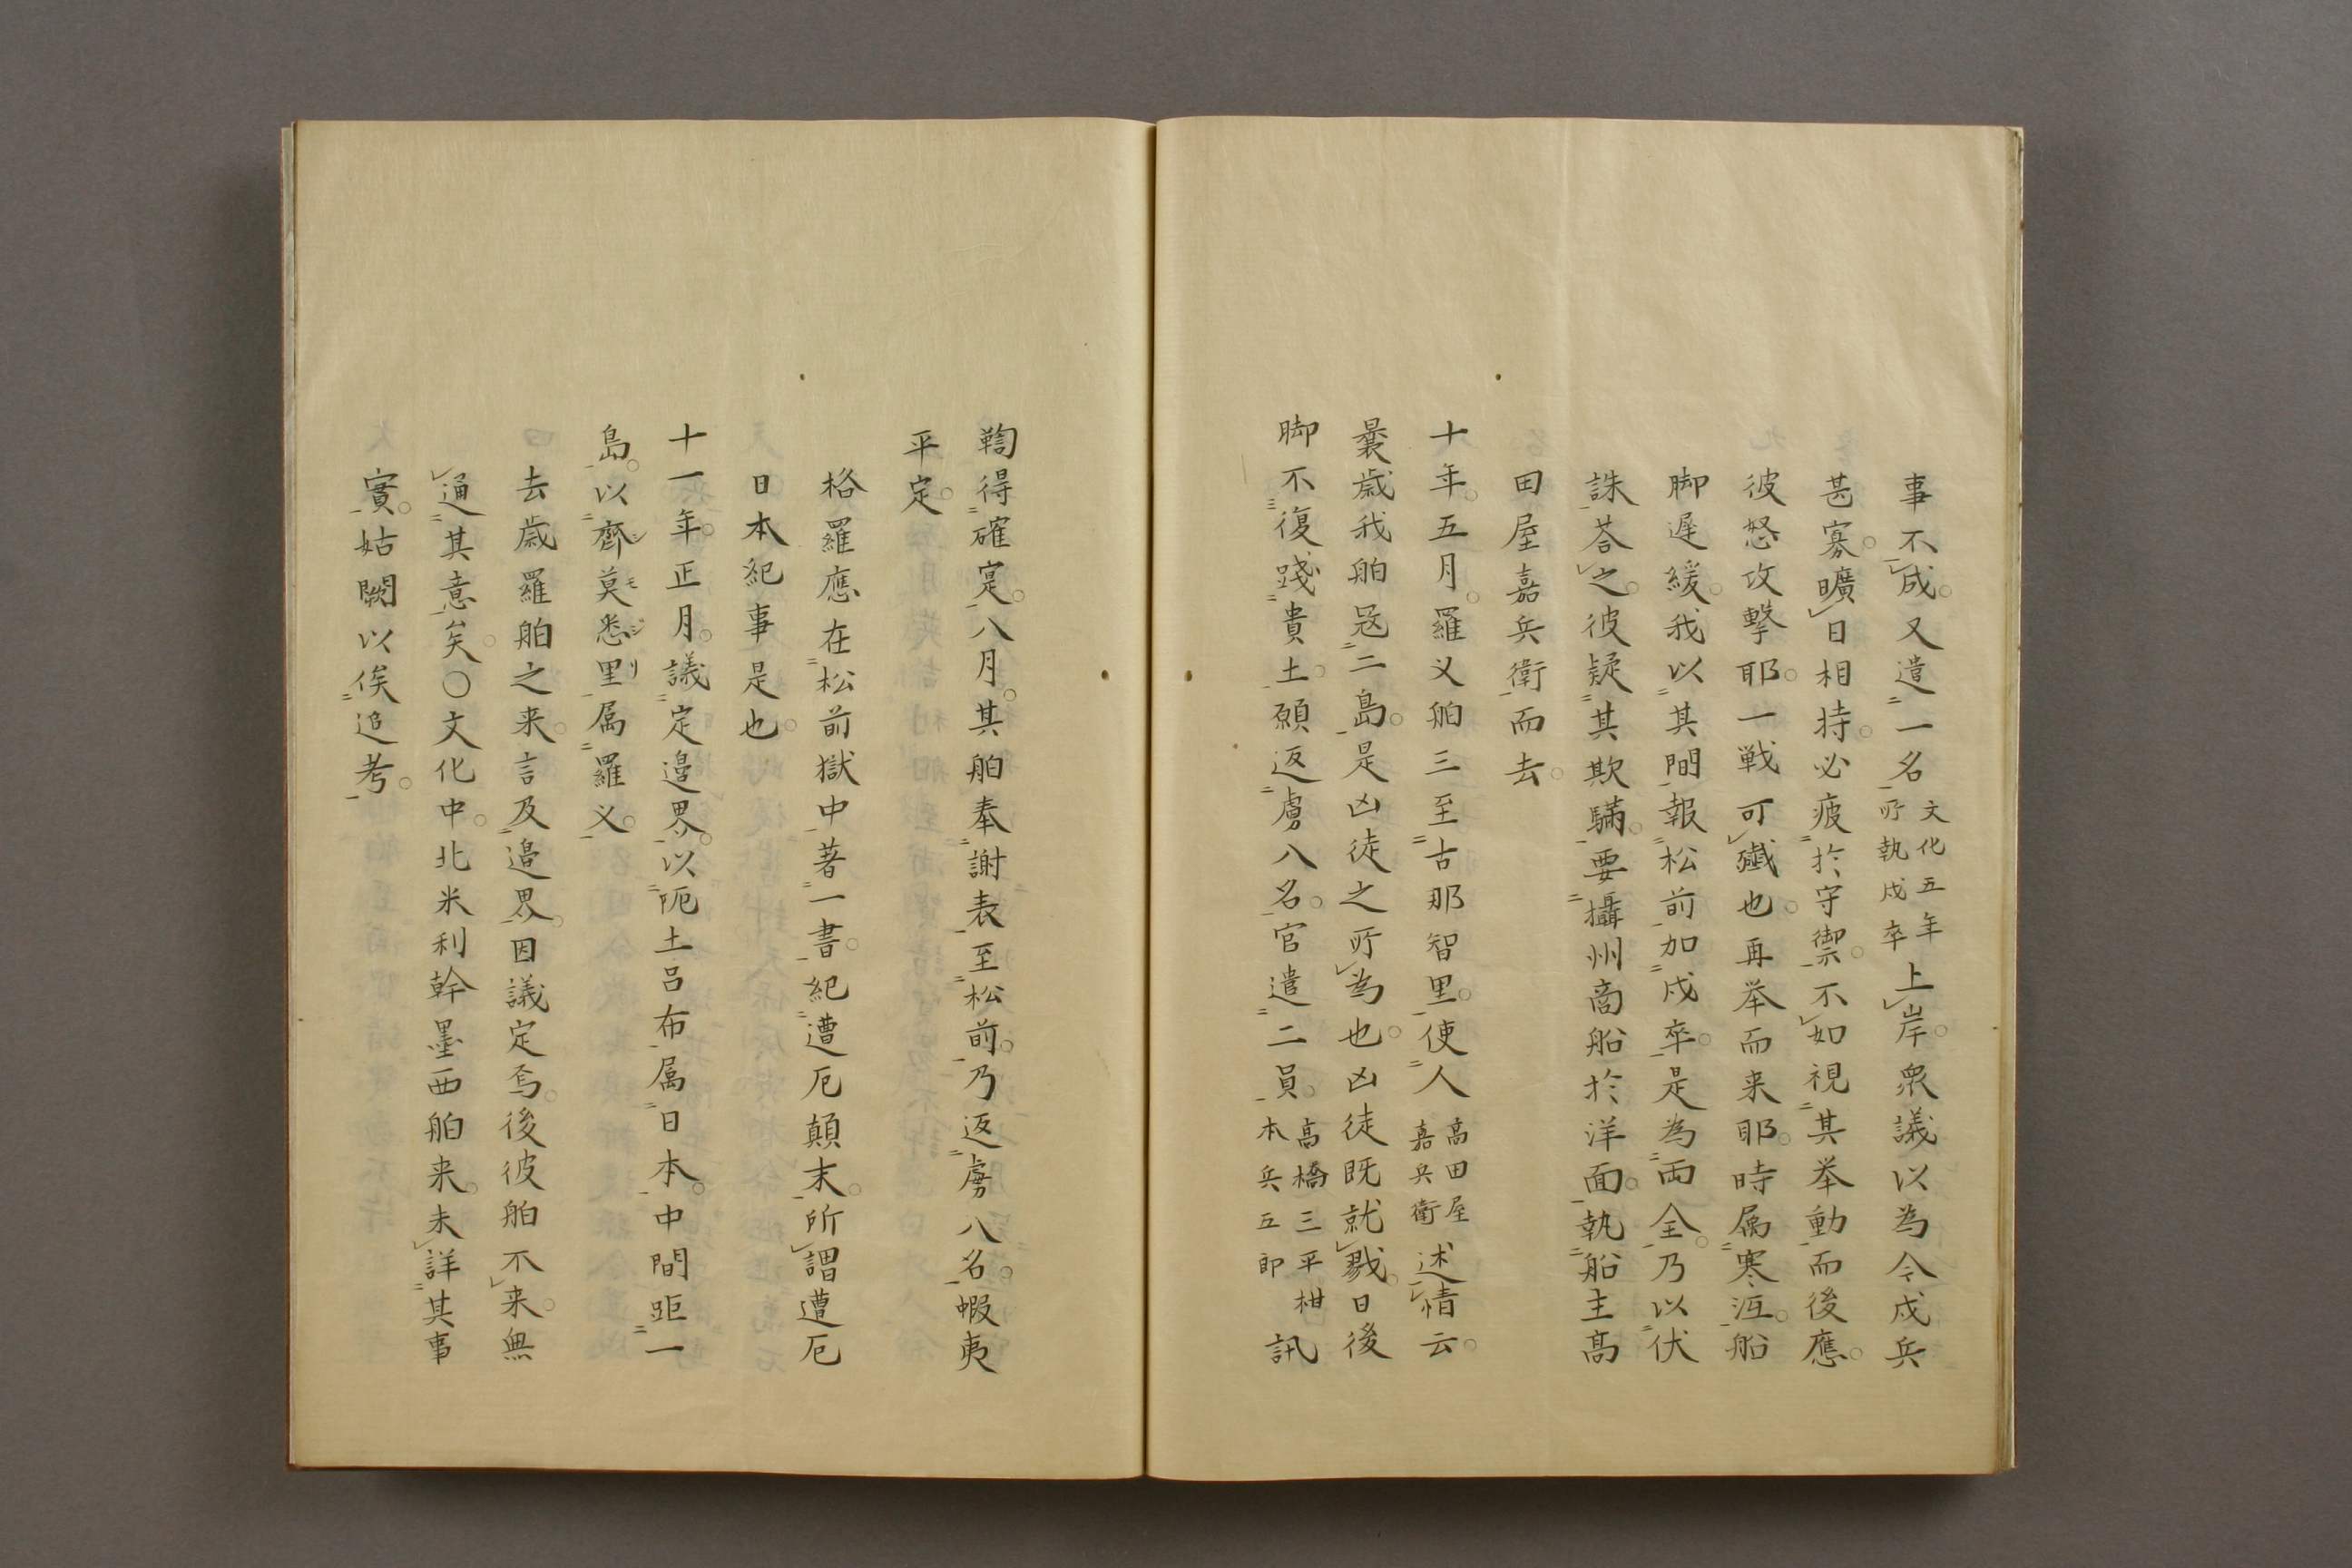 事不成。又遣一名文化五年所執戍卒上岸。衆議以為令戍兵
甚寡。曠日相持。必疲於守禦。不如視其挙動而後應。
彼怒攻撃耶。一戦可殱也。再挙而来耶。時属寒沍。船
脚遅緩。我以其間報松前加戍卒。是為両全。乃以伏
誅荅之。彼疑其欺瞞。要攝州商船於洋面。執船主髙
田屋嘉兵衛而去。
十年。五月。羅义舶三至古那智里。使人高田屋嘉兵衛述情云。
曩歳我舶冦二島。是凶徒之所為也。凶徒既就戮。日後
脚不復踐貴土。願返虜八名。官遣二員。高橋三平柑本兵五郎訊
鞫得確寔。八月。其舶奉謝表至松前。乃返虜八名。蝦夷
平定。
格羅應在松前獄中著一書。紀遭厄顛末。所謂遭厄
日本紀事是也。
十一年。正月。議定邉界。以阨土呂布属日本。中間距一
島。以齊シ莫モ悉シ里リ属羅义。
去歳羅舶之来。言及邉界。因議定焉。後彼舶不来。無
通其意矣。〇文化中。北米利幹墨西舶来。未詳其事
實。姑闕以俟追考。